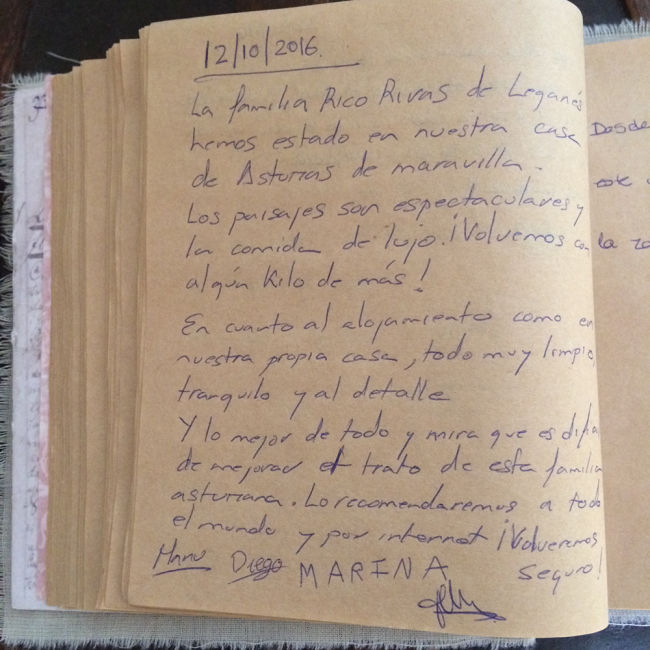 12/10/2016.
La familia Rico Rivas de Leganés
hemos estado en nuestra casa
de Asturias de maravilla.
Los paisajes son espectaculares y
la comida de lujo. ¡Volvemos con
algún kilo de más!
En cuanto al alojamiento como en
nuestra propia casa, todo muy limpio,
tranquilo y al detalle
Y lo mejor de todo y mira que es difícil
de mejorar el trato de esta familia
asturiana. Lo recomendaremos a todo
el mundo y por internet ¡Volveremos
seguro!
Manu Diego MARINA
Desde
este
la